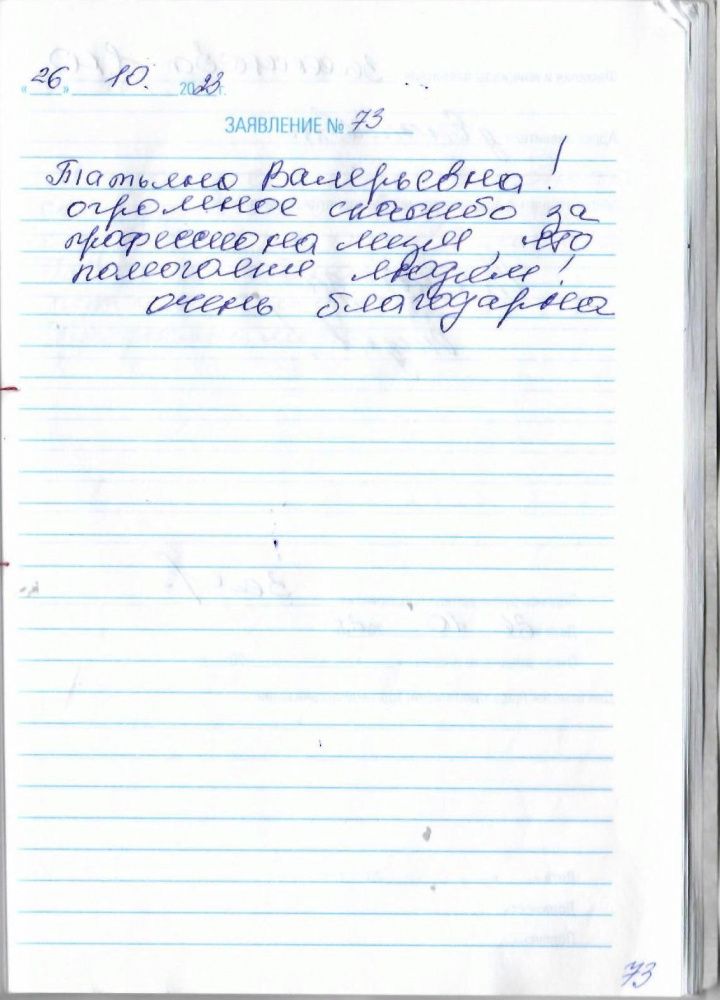 « 26 » 10. 2023 г.
ЗАЯВЛЕНИЕ № 73
Татьяна Валерьевна!
огромное спасибо за
профессионализм, что
помогаете людям!
очень благодарна
73